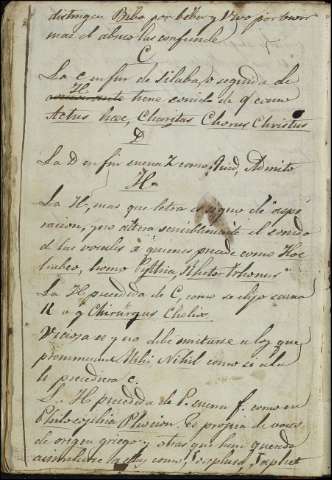 distinguen Bibo por beber y Vivo por
mas el abuso las confunde
C
La C en fin de silaba, o seguida de
H tiene sonido de q como
Actus hæc, Charitas Chorus Christus
D
La D en fin suena Z como, Quid, Admito
H
La H, mas que letra es signo de aspi
racion, pero altera sensiblemente el sonido
de las vocales à quienes precede como Hoc
habeo, homo Pythia, Rhetor
La H precedida de C, como se dijo suena
K o q Chirurgus Chelix.
Viciosa es y no debe imitarse a los que
pronuncian Mihi Nihil como si a la
h precediera c.
La H precedida de P. suena f. como en
Philosophia Phision. Es propia de voces
de origen griego y otras que han querido